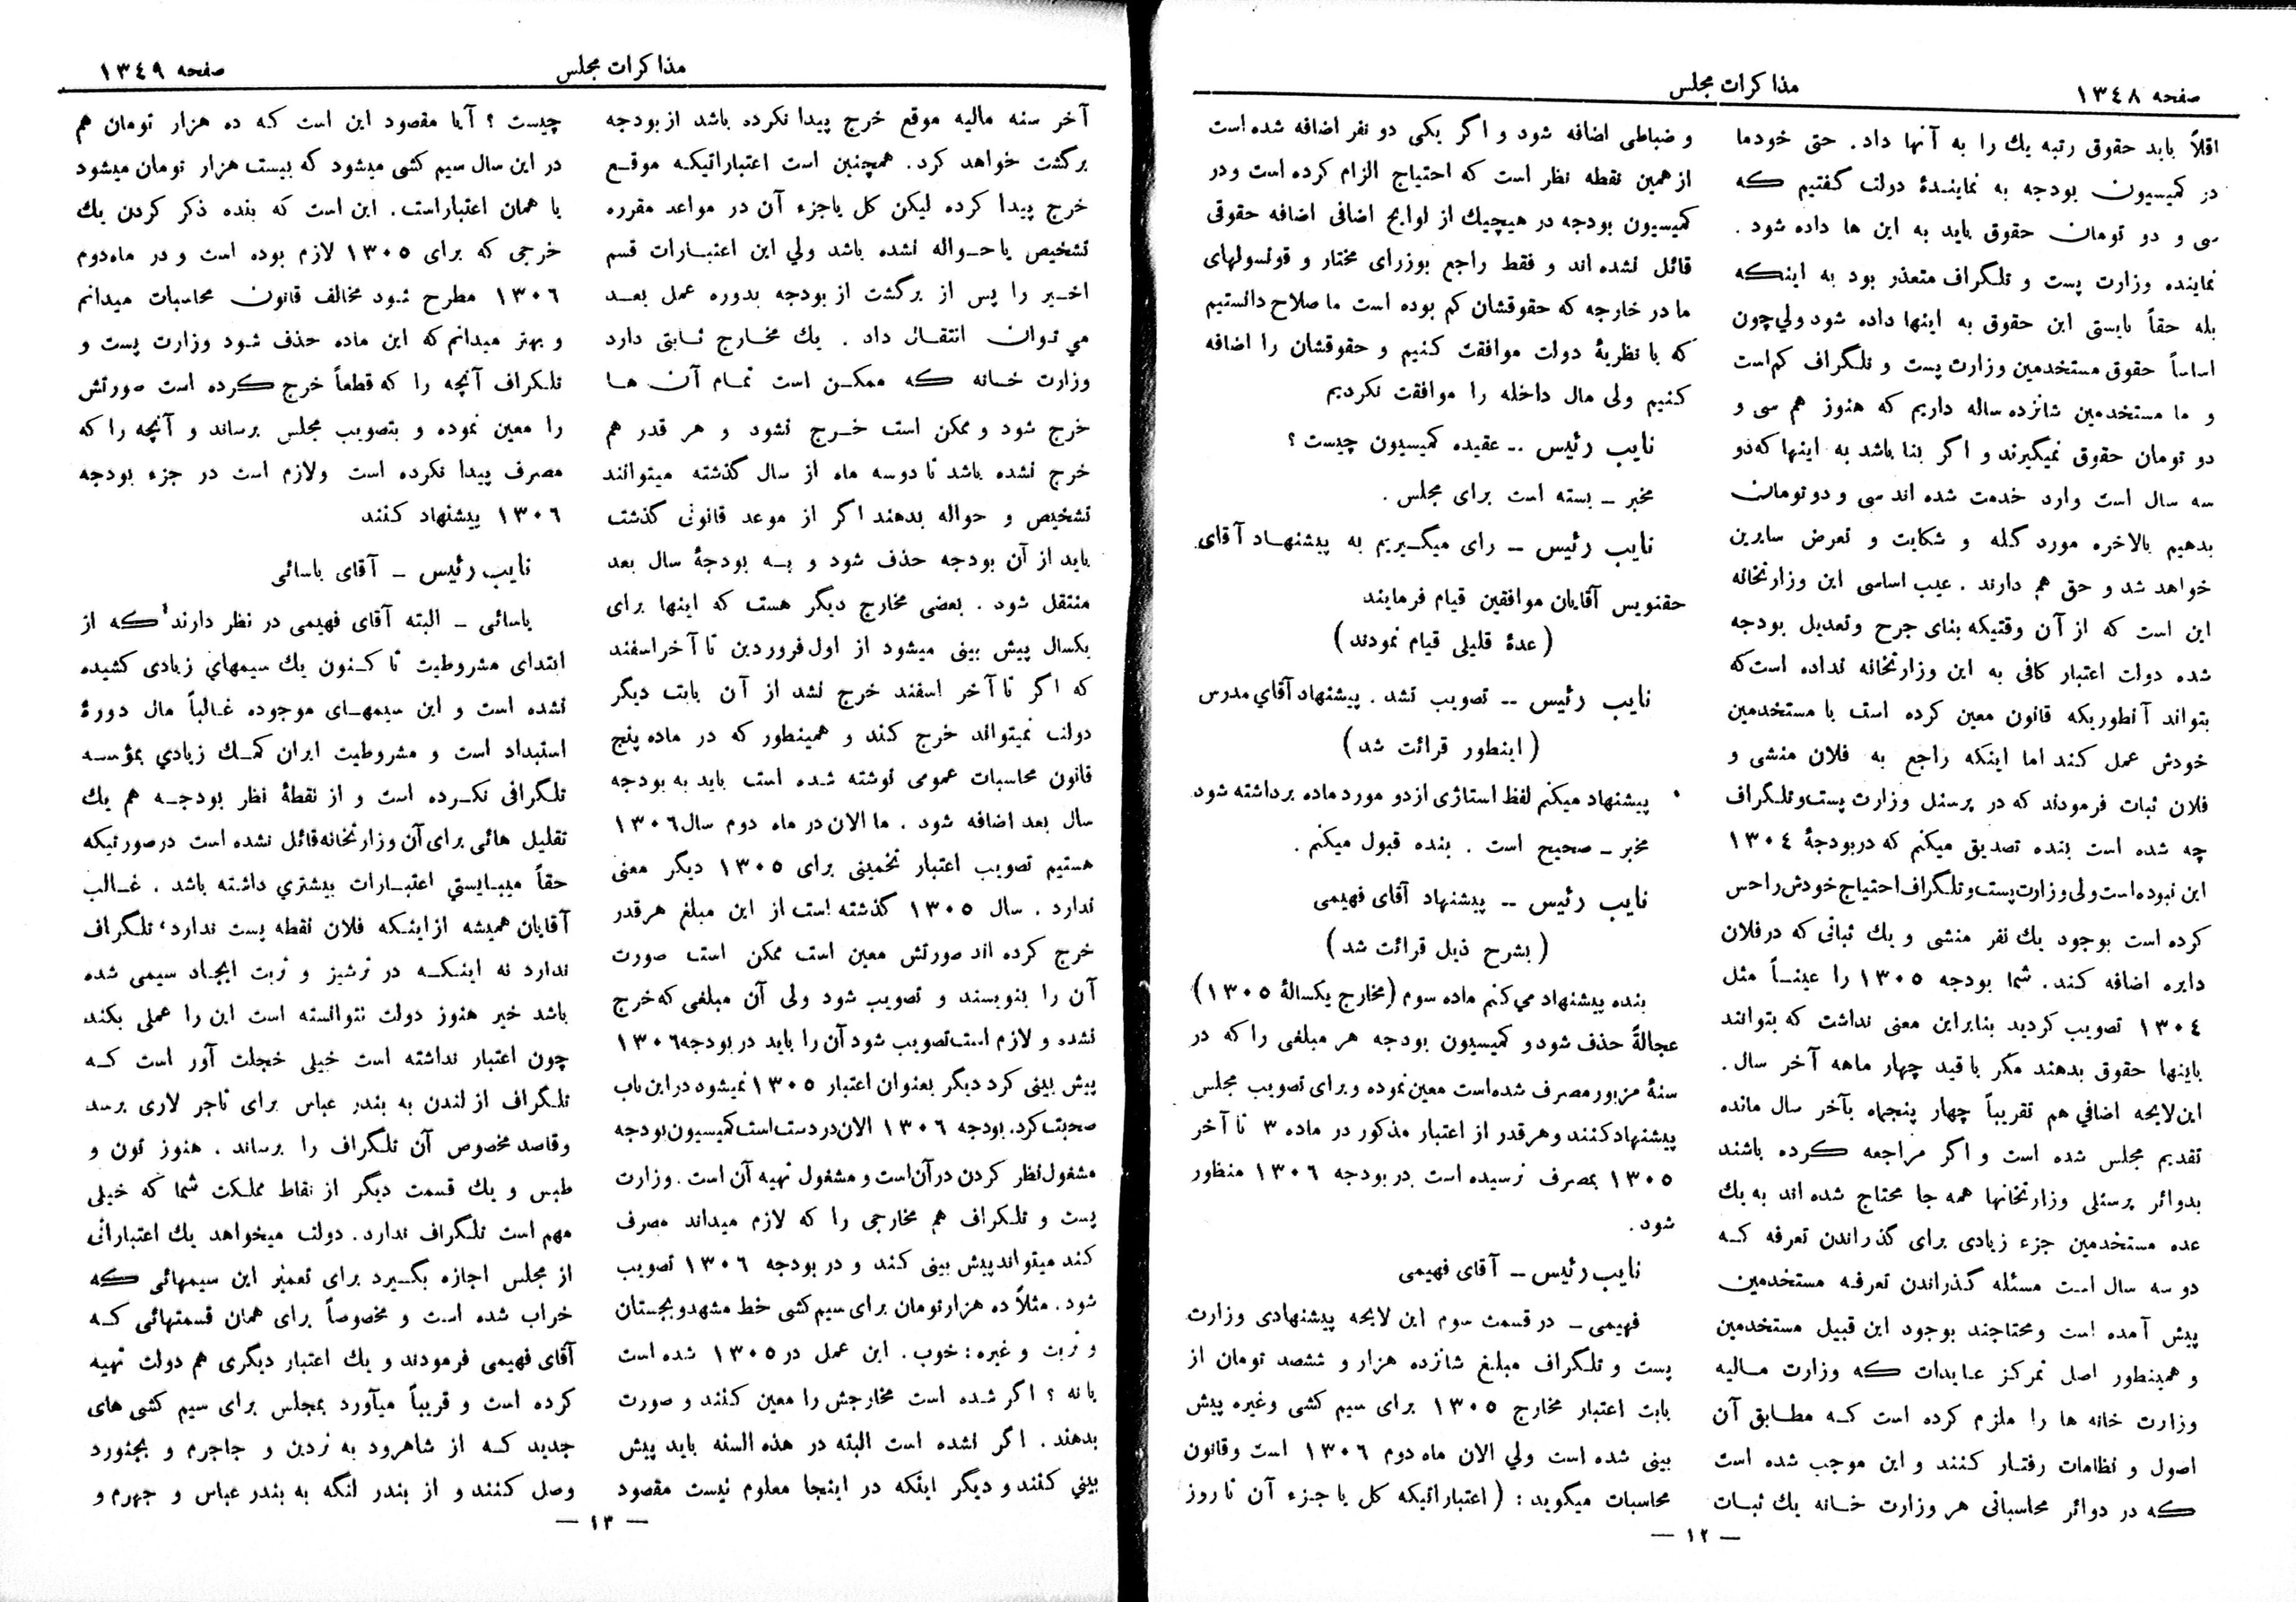 صفحه ۱۳٤۸
مذاکرات مجلس
اقلاً باید حقوق رتبه یك را به آنها داد. حتی خودما
در کمیسیون بودجه به نمایندهٔ دولت گفتیم که
سی و دو تومان حقوق باید به این ها داده شود .
نماینده وزارت پست و تلگراف متعذر بود به اینکه
بله حقاً بایستی این حقوق به اینها داده شود ولی‌چون
اساساً حقوق مستخدمین وزارت پست و تلگراف کم‌است
و ما مستخدمین شانزده ساله داریم که هنوز هم سی و
دو تومان حقوق نمیگیرند و اگر بنا باشد به اینها که‌دو
سه سال است وارد خدمت شده اند سی و دو تومان
بدهیم بالاخره مورد گله و شکایت و تعرض سایرین
خواهد شد و حق هم دارند . عیب اساسی این وزارتخانه
این است که از آن وقتیکه بنای جرح وتعدیل بودجه
شده دولت اعتبار کافی به این وزارتخانه نداده است‌که
بتواند آنطوریکه قانون معین کرده است با مستخدمین
خودش عمل کند اما اینکه راجع به فلان منشی و
فلان ثبات فرمودند که در پرسنل وزارت پست‌وتلگراف
چه شده است بنده تصدیق میکنم که دربودجهٔ ۱۳۰٤
این نبوده‌است ولی وزارت‌پست‌وتلگراف احتیاج خودش راحس
کرده است بوجود یك نفر منشی و یك ثباتی که درفلان
دایره اضافه کند. شما بودجه ۱۳۰۵ را عیناً مثل
۱۳۰٤ تصویب کردید بنابراین معنی نداشت که بتوانند
باینها حقوق بدهند مگر با قید چهار ماهه آخر سال.
این‌لایحه اضافي هم تقریباً چهار پنجماه بآخر سال مانده
تقدیم مجلس شده است و اگر مراجعه کرده باشند
بدوائر پرسنلی وزارتخانها همه جا محتاج شده اند به یك
عده مستخدمین جزء زیادی برای گذراندن تعرفه که
دو سه سال است مسئله گذراندن تعرفه مستخدمین
پیش آمده است ومحتاجند بوجود این قبیل مستخدمین
و همینطور اصل تمرکز عایدات که وزارت مالیه
وزارت خانه ها را ملزم کرده است که مطابق آن
اصول و نظامات رفتار کنند و این موجب شده است
که در دوائر محاسباتی هر وزارت خانه یك ثبات
و ضباطی اضافه شود و اگر یکی دو نفر اضافه شده است
از همین نقطه نظر است که احتیاج الزام کرده است ودر
کمیسیون بودجه در هیچیك از لوایح اضافی اضافه حقوقی
قائل نشده اند و فقط راجع بوزرای مختار و قونسولهای
ما در خارجه که حقوقشان کم بوده است ما صلاح دانستیم
که با نظریهٔ دولت موافقت کنیم و حقوقشان را اضافه
کنیم ولی مال داخله را موافقت نکردیم
نایب رئیس -- عقیده کمیسیون چیست ؟
مخبر ـ بسته است برای مجلس .
نایب رئیس -- رای میگیریم به پیشنهاد آقای
حقنویس آقایان موافقین قیام فرمایند
( عدهٔ قلیلی قیام نمودند )
نایب رئیس -- تصویب نشد . پیشنهاد آقاي مدرس
( اینطور قرائت شد )
پیشنهاد میکنم لفظ استاژی از دو مورد ماده برداشته شود
مخبر ـ صحیح است . بنده قبول میکنم .
نایب رئیس -- پیشنهاد آقای فهیمی
( بشرح ذیل قرائت شد )
بنده پیشنهاد می‌کنم ماده سوم (مخارج یکسالهٔ ۱۳۰۵)
عجالةً حذف شود و کمیسیون بودجه هر مبلغی را که در
سنهٔ مزبور مصرف شده‌است معین‌نموده و برای تصویب مجلس
پیشنهاد کنند و هرقدر از اعتبار مذکور در ماده ۳ تا آخر
۱۳۰۵ بمصرف نرسیده است در بودجه ۱۳۰٦ منظور
شود.
نایب رئیس ـ آقای فهیمی
فهیمی ـ در قسمت سوم این لایحه پیشنهادی وزارت
پست و تلگراف مبلغ شانزده هزار و ششصد تومان از
بابت اعتبار مخارج ۱۳۰۵ برای سیم کشی وغیره پیش
بینی شده است ولي الان ماه دوم ۱۳۰٦ است وقانون
محاسبات میگوید : ( اعتباراتیکه کل یا جزء آن تا روز
— ۱۲ —
مذاکرات مجلس
صفحه ۱۳٤۹
آخر سنه مالیه موقع خرج پیدا نکرده باشد از بودجه
برگشت خواهد کرد. همچنین است اعتباراتیکه موقع
خرج پیدا کرده لیکن کل یاجزء آن در مواعد مقرره
تشخیص یا حواله نشده باشد ولي این اعتبارات قسم
اخیر را پس از برگشت از بودجه بدوره عمل بعد
مي توان انتقال داد . یك مخارج ثابتی دارد
وزارت خانه که ممکن است تمام آن ها
خرج شود و ممکن است خرج نشود و هر قدر هم
خرج نشده باشد تا دوسه ماه از سال گذشته میتوانند
تشخیص و حواله بدهند اگر از موعد قانونی گذشت
باید از آن بودجه حذف شود و به بودجهٔ سال بعد
منتقل شود . بعضی مخارج دیگر هست که اینها برای
یکسال پیش بینی میشود از اول فروردین تا آخر اسفند
که اگر تا آخر اسفند خرج نشد از آن بابت دیگر
دولت نمیتواند خرج کند و همینطور که در ماده پنج
قانون محاسبات عمومی نوشته شده است باید به بودجه
سال بعد اضافه شود . ما الان در ماه دوم سال ۱۳۰٦
هستیم تصویب اعتبار تخمینی برای ۱۳۰۵ دیگر معنی
ندارد . سال ۱۳۰۵ گذشته است از این مبلغ هرقدر
خرج کرده اند صورتش معین است ممکن است صورت
آن را بنویسند و تصویب شود ولی آن مبلغی که خرج
نشده و لازم است تصویب شود آن را باید در بودجه ۱۳۰٦
پیش بینی کرد دیگر بعنوان اعتبار ۱۳۰۵ نمیشود در این باب
صحبت کرد. بودجه ۱۳۰٦ الان در دست است کمیسیون بودجه
مشغول نظر کردن در آن است و مشغول تهیه آن است . وزارت
پست و تلگراف هم مخارجی را که لازم میداند مصرف
کند میتواند پیش بینی کند و در بودجه ۱۳۰٦ تصویب
شود . مثلاً ده هزار تومان برای سیم کشی خط مشهدوبجستان
و تربت و غیره : خوب . این عمل در ۱۳۰۵ شده است
یا نه ؟ اگر شده است مخارجش را معین کنند و صورت
بدهند . اگر نشده است البته در هذه السنه باید پیش
بیني کنند و دیگر اینکه در اینجا معلوم نیست مقصود
چیست ؟ آیا مقصود این است که ده هزار تومان هم
در این سال سیم کشی میشود که بیست هزار تومان میشود
یا همان اعتباراست. این است که بنده ذکر کردن یك
خرجی که برای ۱۳۰۵ لازم بوده است و در ماه‌دوم
۱۳۰٦ مطرح شود مخالف قانون محاسبات میدانم
و بهتر میدانم که این ماده حذف شود وزارت پست و
تلگراف آنچه را که قطعاً خرج کرده است صورتش
را معین نموده و بتصویب مجلس برساند و آنچه را که
مصرف پیدا نکرده است ولازم است در جزء بودجه
۱۳۰٦ پیشنهاد کنند
نایب رئیس ـ آقای یاسائی
یاسائی ـ البته آقای فهیمی در نظر دارند که از
ابتدای مشروطیت تا کنون یك سیمهاي زیادی کشیده
نشده است و این سیمهای موجوده غالباً مال دورهٔ
استبداد است و مشروطیت ایران کمك زیادي بمؤسسه
تلگرافی نکرده است و از نقطهٔ نظر بودجه هم یك
تقلیل هائی برای آن وزارتخانه قائل نشده است درصورتیکه
حقاً میبایستي اعتبارات بیشتري داشته باشد . غالب
آقایان همیشه از اینکه فلان نقطه پست ندارد، تلگراف
ندارد نه اینکه در ترشیز و تربت ایجاد سیمی شده
باشد خیر هنوز دولت نتوانسته است این را عملی بکند
چون اعتبار نداشته است خیلی خجلت آور است که
تلگراف از لندن به بندر عباس برای تاجر لاری برسد
وقاصد مخصوص آن تلگراف را برساند . هنوز تون و
طبس و یك قسمت دیگر از نقاط مملکت شما که خیلی
مهم است تلگراف ندارد. دولت میخواهد یك اعتباراتی
از مجلس اجازه بگیرد برای تعمیر این سیمهائی که
خراب شده است و مخصوصاً برای همان قسمتهائی که
آقای فهیمی فرمودند و یك اعتبار دیگری هم دولت تهیه
کرده است و قریباً میآورد بمجلس برای سیم کشی های
جدید که از شاهرود به نردین و جاجرم و بجنورد
وصل کنند و از بندر لنگه به بندر عباس و جهرم و
— ۱۳ —